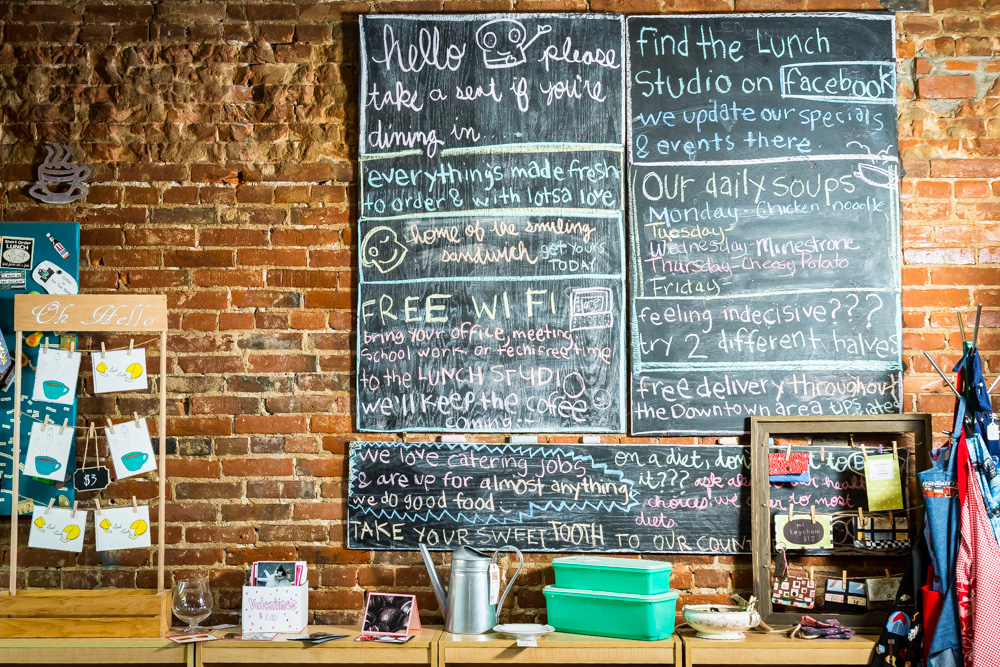 hello please
take a seat if you're
dining in...
everything's made fresh
to order & with lotsa love
home of the smiling
sandwich get yours
TODAY
FREE WIFI
bring your office, meeting,
School work, or tech free time
to the LUNCH STUDIO
we'll keep the coffee
coming...
find the Lunch
Studio on facebook
we update our specials
& events there.
Our daily soups
Monday- Chicken noodle
Tuesday-
Wednesday- Minestrone
Thursday- Cheesy Potato
Friday-
feeling indecisive???
try 2 different halves
free delivery throughout
the Downtown area
we love catering jobs
& are up for almost anything
we do good food.
TAKE YOUR SWEET TOOTH TO OUR COUNT
on a diet,
it???
choices
diets.
Short Order
LUNCH
Oh Hello
$3
Valentine's
$2.00
mi
keychain
$12